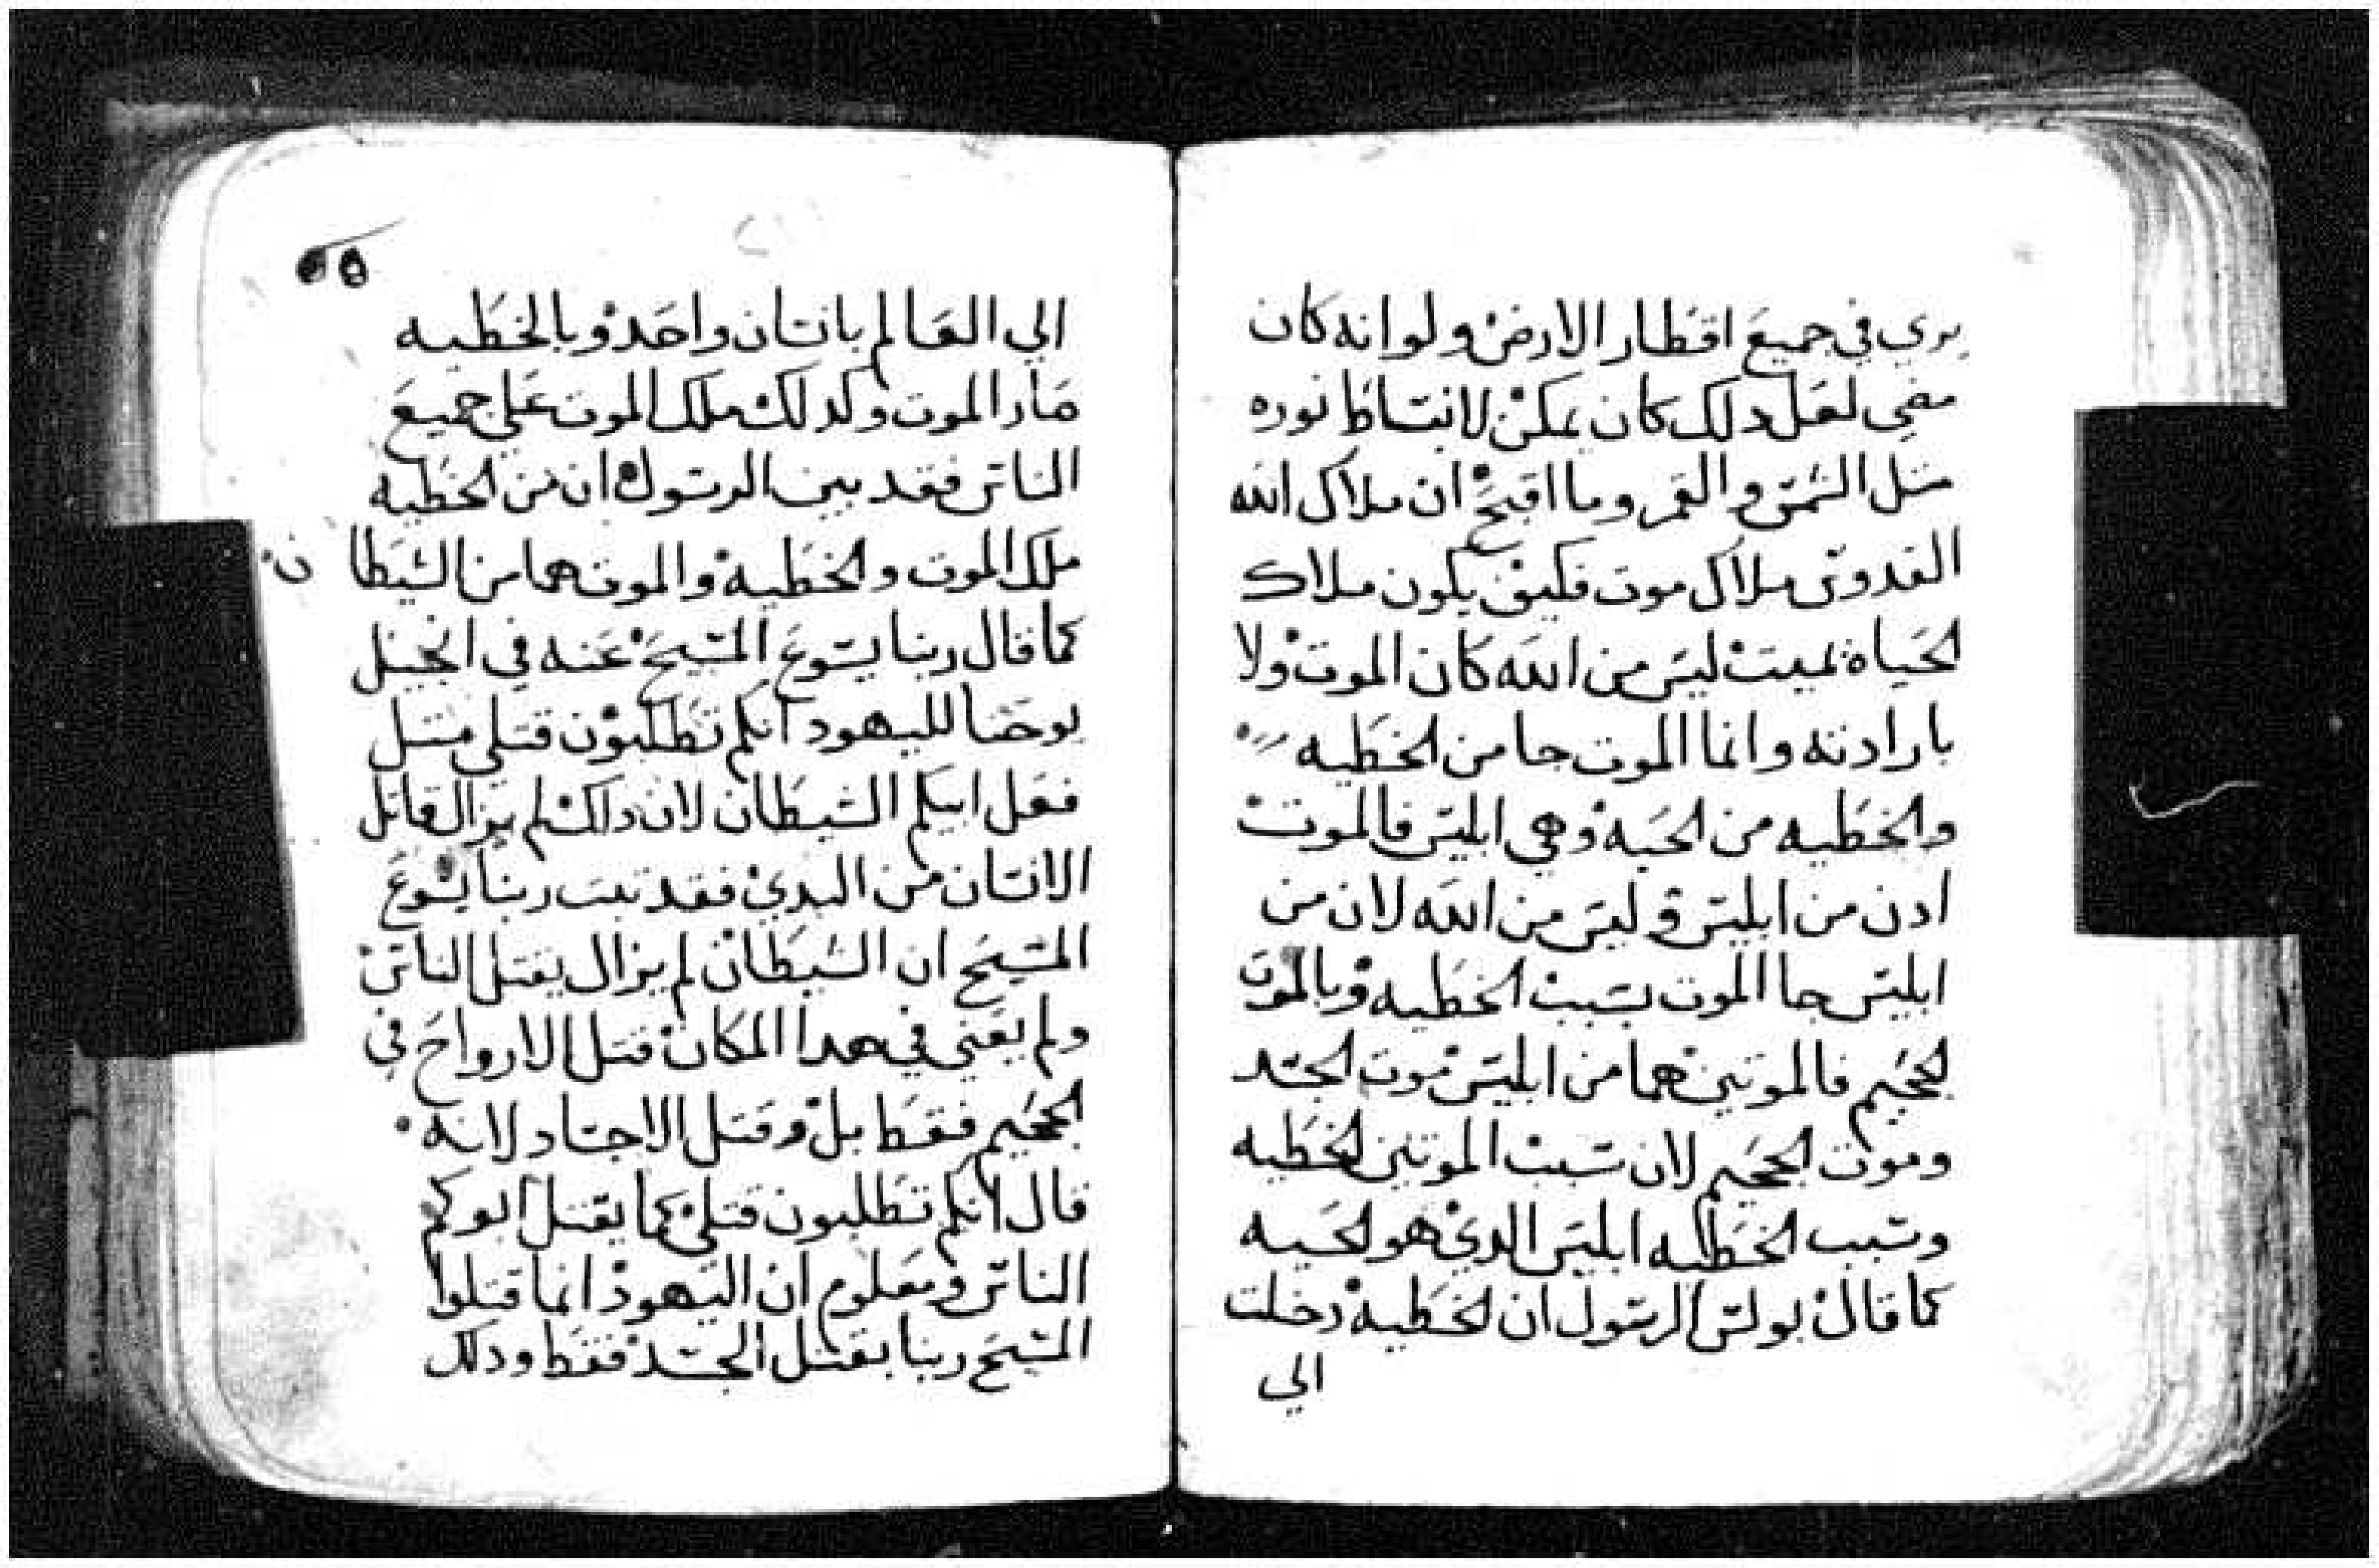 يري في جميع اقطار الارض ولو انه كان
مضي لعل دلك كان يمكن لانبساط نوره
متل الشمس والقمر وما اقبح ان ملاك الله
القدوس ملاك موت فكيف يكون ملاك
الحياة يميت ليس من الله كان الموت ولا
بارادته وانما الموت جا من الخطيه
والخطيه من الحيه وهي ابليس فالموت
ادن من ابليس وليس من الله لان من
ابليس جا الموت بسبب الخطيه وبالموت
الجحيم فالموتين هما من ابليس موت الجسد
وموت الجحيم لان سبب الموتين الخطيه
وسبب الخطيه ابليس الدي هو الحيه
كما قال بولس الرسول ان الخطيه دخلت
الي
الي العالم بانسان واحد وبالخطيه
صار الموت وكدلك ملك الموت علي جميع
الناس فقد بين الرسول ان من الخطيه
ملك الموت والخطيه والموت هما من الشيطان
كما قال ربنا يسوع المسيح عنه في انجيل
يوحنا لليهود انكم تطلبون قتلي متل
فعل ابيكم الشيطان لان داك لم يزال قاتل
الانسان من البدي فقد تبت ربنا يسوع
المسيح ان الشيطان لم يزال يقتل الناس
ولم يعني في هدا المكان قتل الارواح في
الجحيم فقط بل وقتل الاجساد لانه
قال انكم تطلبون قتلي كما يقتل ابوكم
الناس ومعلوم ان اليهود انما قتلوا
المسيح ربنا بقتل الجسد فقط ودلك